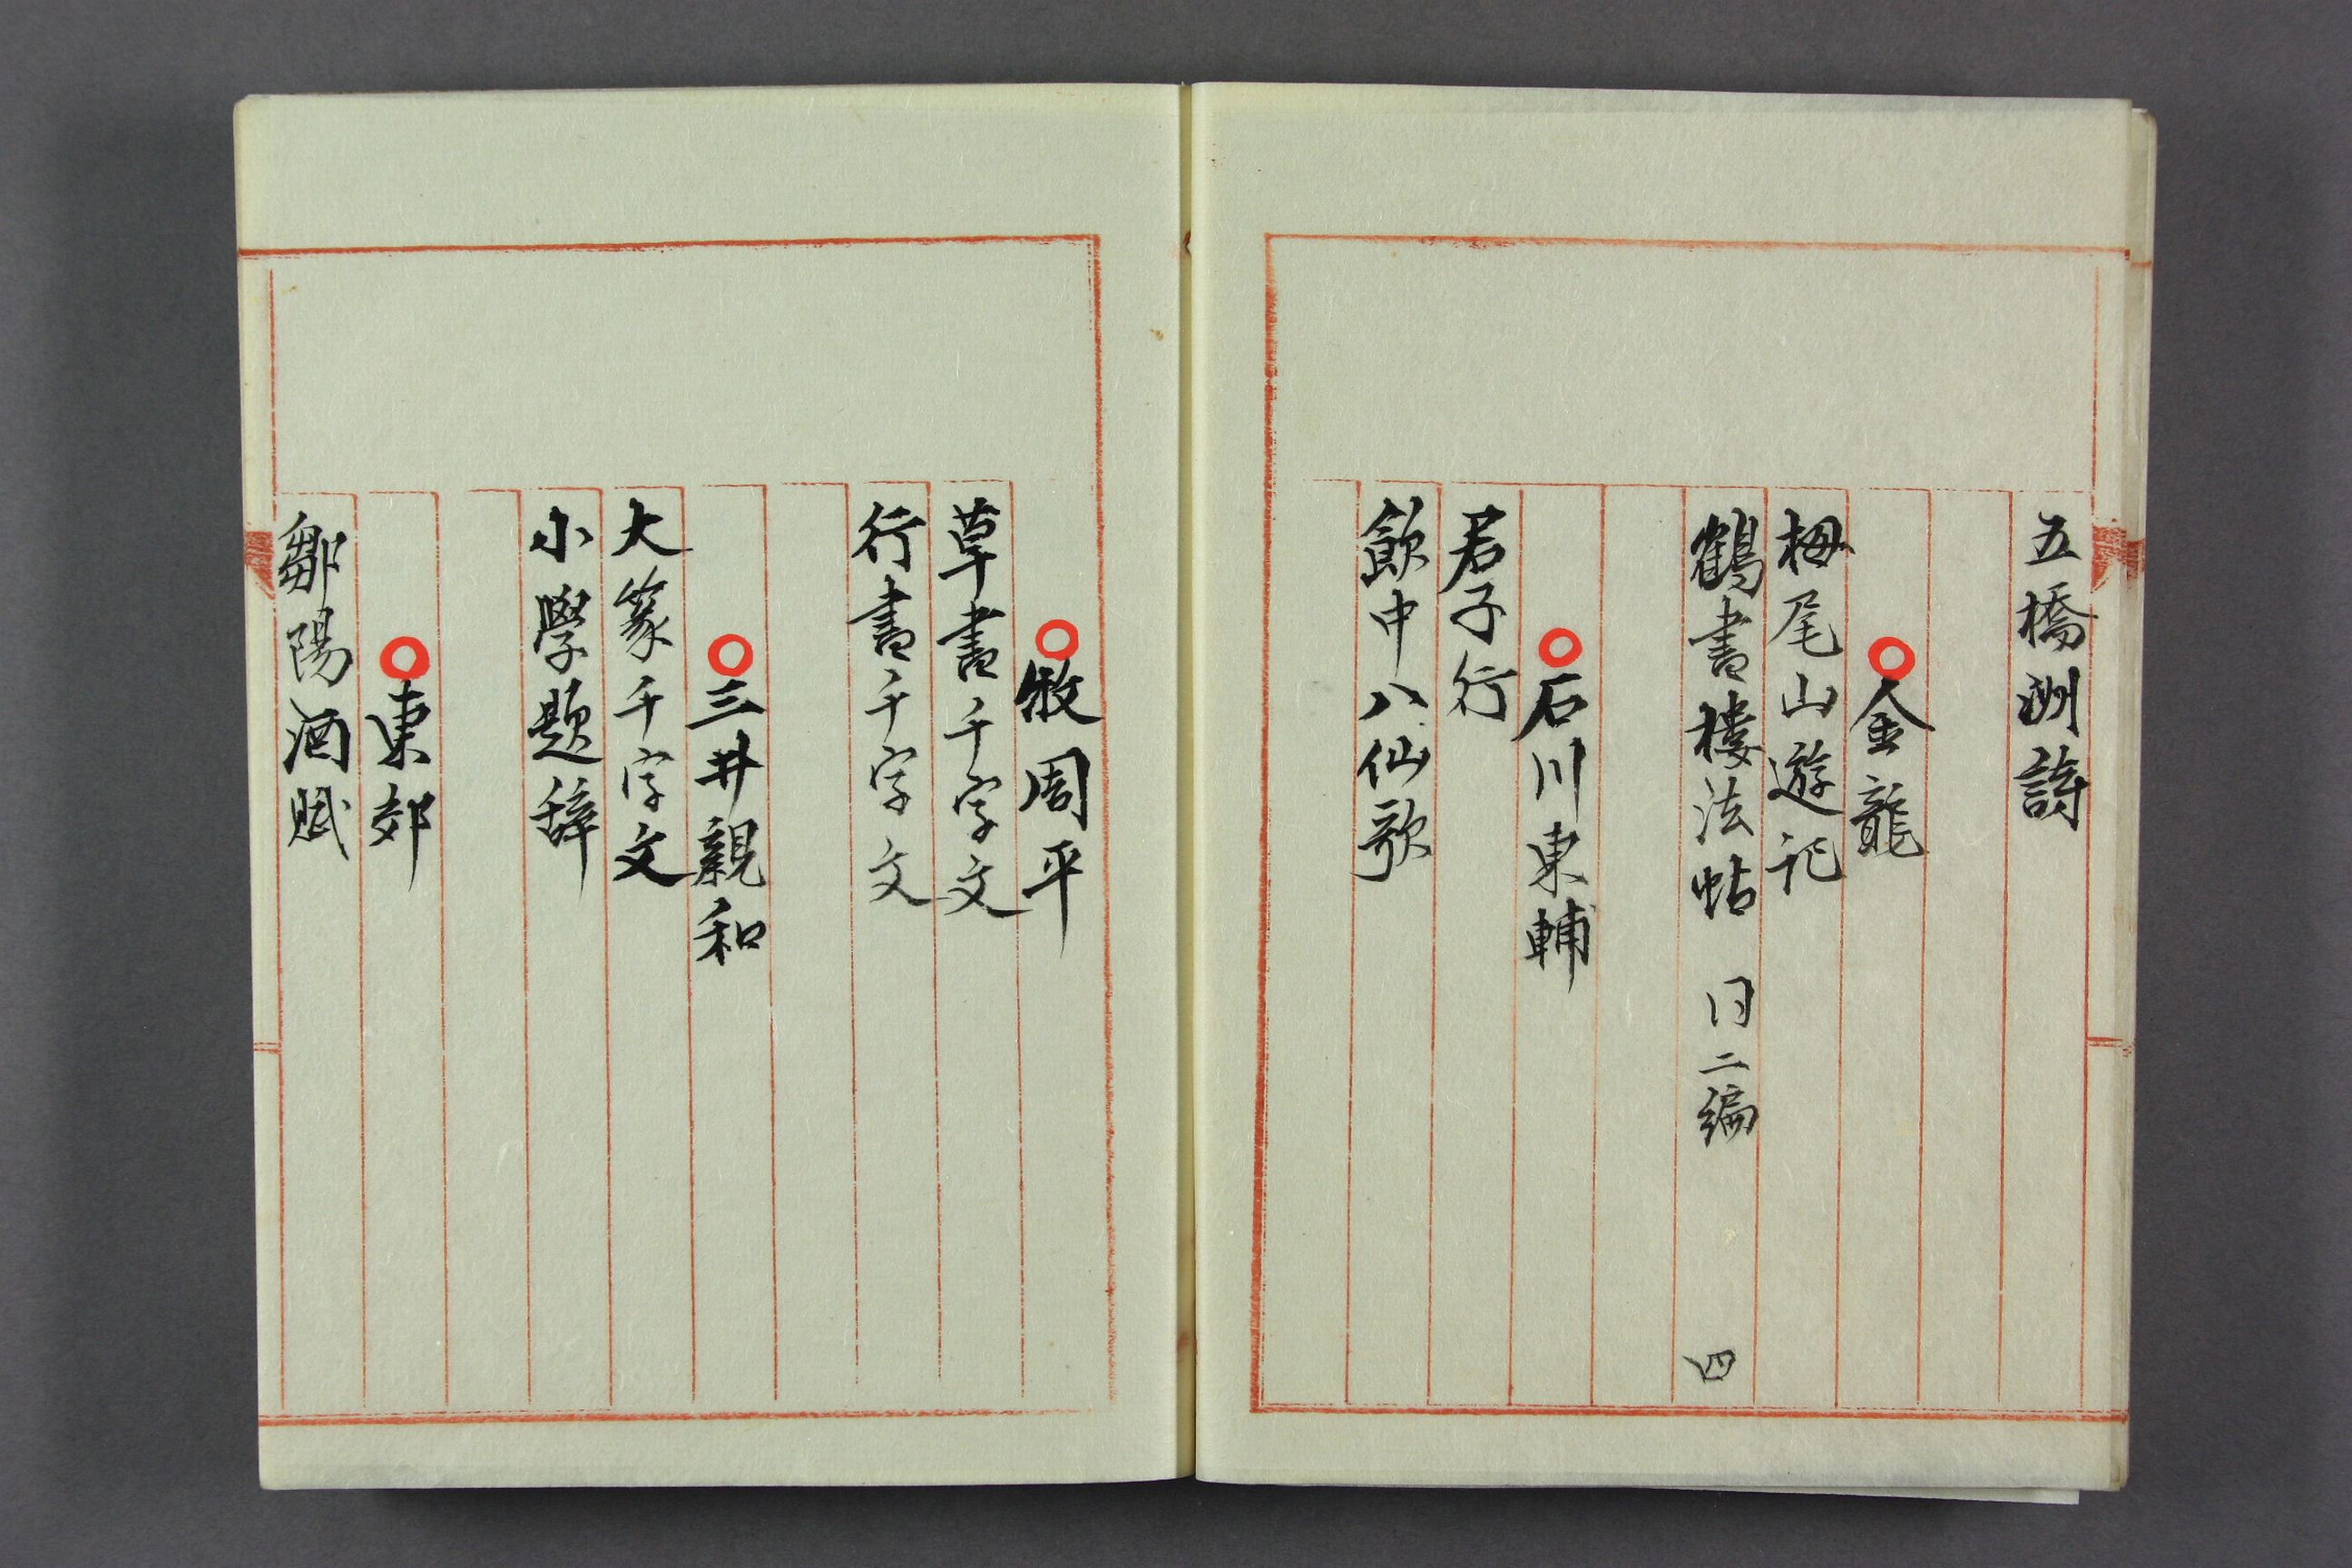 五橋洲詩
金龍
栂尾山遊記
鶴書楼法帖 同二編 四
石川東輔
君子行
飲中八仙歌
牧周平
草書千字文
行書千字文
三井親和
大篆千字文
小學題辞
東郊
鄒陽酒賦